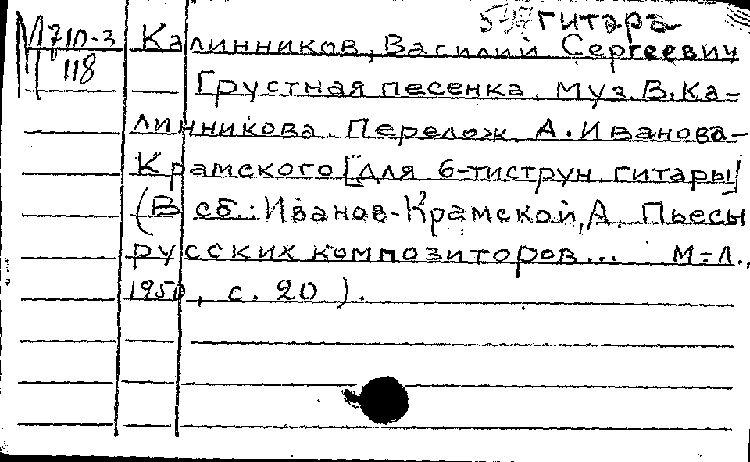 гитара
М 710-3
118
Калинников, Василий Сергеевич
Грустная песенка. Муз. В. Ка-
линникова. Перелож. А. Иванова-
Крамского [для 6-тиструн. гитары]
(В сб.: Иванов-Крамской, А. Пьесы
русских композиторов... М-Л.,
1950, с. 20).